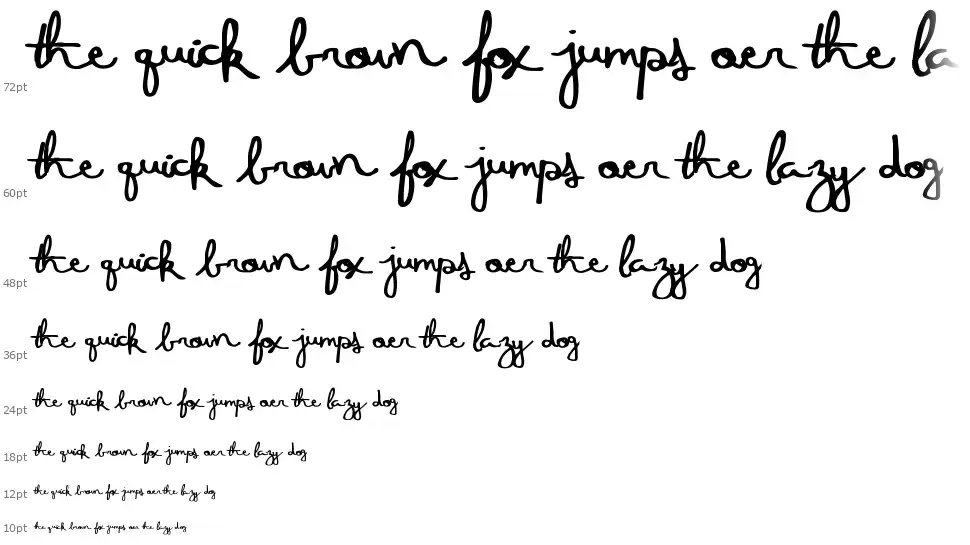 72pt the quick brown fox jumps oer the la
60pt the quick brown fox jumps oer the lazy dog
48pt the quick brown fox jumps oer the lazy dog
36pt the quick brown fox jumps oer the lazy dog
24pt the quick brown fox jumps oer the lazy dog
18pt the quick brown fox jumps oer the lazy dog
12pt the quick brown fox jumps oer the lazy dog
10pt the quick brown fox jumps oer the lazy dog